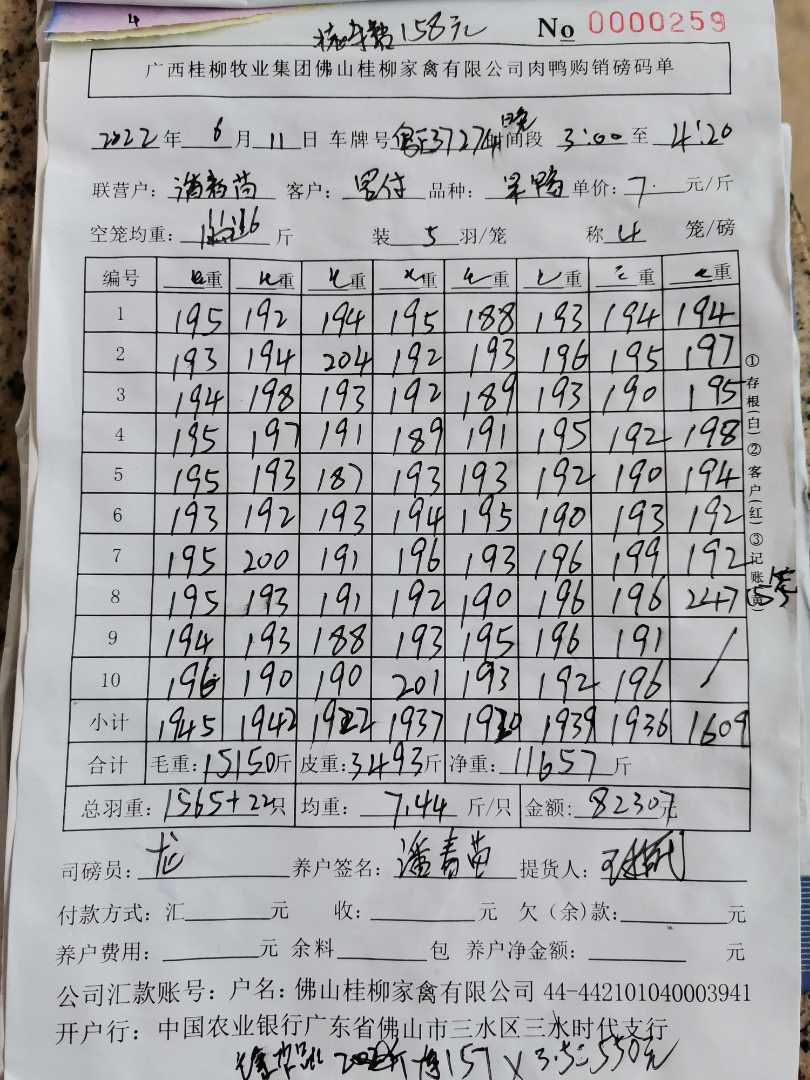 158元 No 0000259
广西桂柳牧业集团佛山桂柳家禽有限公司肉鸭购销磅码单
2022年 6月 11日 车牌号 3727 时间段 晚 3:00 至 4:20
联营户: 潘青苗 客户: 品种: 鸭 单价: 7. 元/斤
空笼均重: 斤 装 5 羽/笼 称 4 笼/磅
编号 重 重 重 重 重 重 重 重
1 195 192 194 195 188 193 194 194
2 193 194 204 192 193 196 195 197
3 194 198 193 192 189 193 190 195
4 195 197 191 189 191 195 192 198
5 195 193 187 193 193 192 190 194
6 193 192 193 194 195 190 193 192
7 195 200 191 196 193 196 199 192
8 195 193 191 192 190 196 196 247
9 194 193 188 193 195 196 191 /
10 196 190 190 201 193 192 196 /
小计 1945 1942 1922 1937 1920 1939 1936 1609
合计 毛重: 15150斤 皮重: 3493斤 净重: 11657 斤
总羽重: 1565+22只 均重: 7.44 斤/只 金额: 82307元
①存根(白)②客户(红)③记账(黄)
司磅员: 龙 养户签名: 潘青苗 提货人:
付款方式: 汇 元 收: 元 欠(余)款: 元
养户费用: 元 余料 包 养户净金额: 元
公司汇款账号: 户名: 佛山桂柳家禽有限公司 44-442101040003941
开户行: 中国农业银行广东省佛山市三水区三水时代支行
157 × 3.5 = 550元